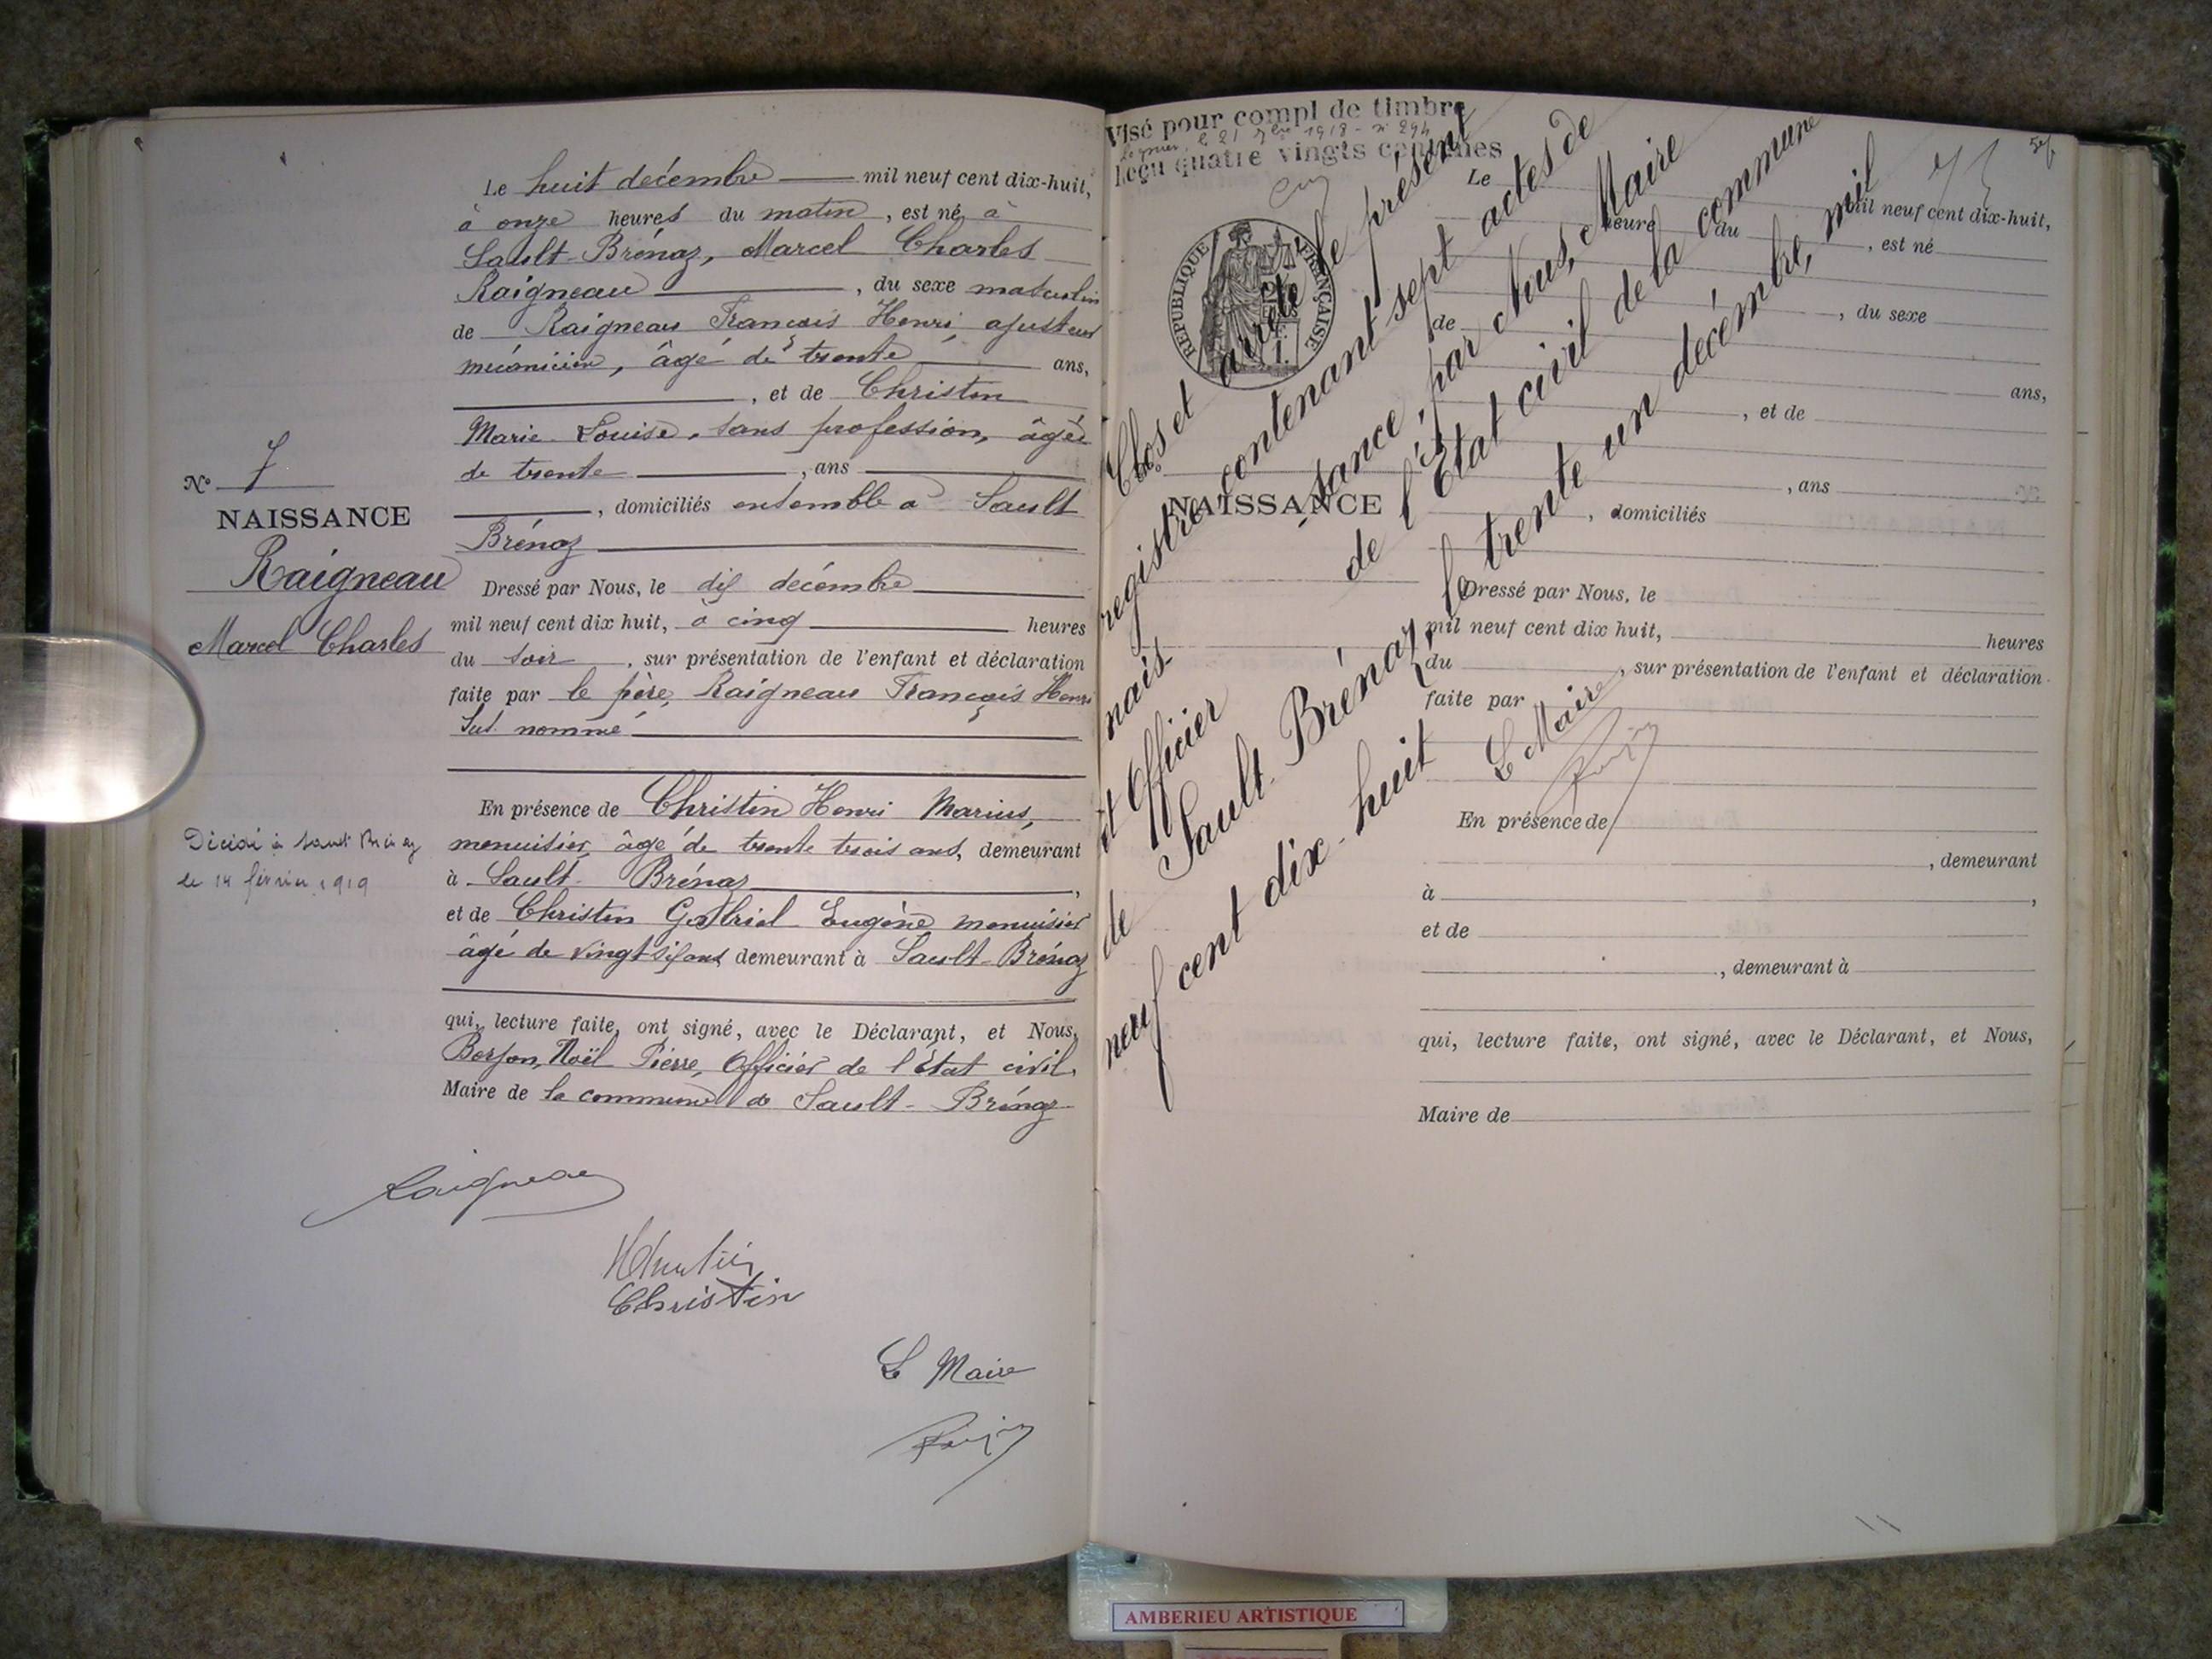 Le huit décembre mil neuf cent dix-huit,
à onze heures du matin, est né, à
Sault-Brénaz, Marcel Charles
Raigneau, du sexe masculin
de Raigneau François Henri, ajusteur
mécanicien, âgé de trente ans,
, et de Christin
Marie-Louise, sans profession, âgée
de trente, ans
, domiciliés ensemble à Sault
Brénaz
N° 7
NAISSANCE
Raigneau
Marcel Charles
Dressé par Nous, le dix décembre
mil neuf cent dix huit, à cinq heures
du soir, sur présentation de l'enfant et déclaration
faite par le père, Raigneau François Henri
sus. nommé
En présence de Christin Henri Marius,
menuisier, âgé de trente trois ans, demeurant
à Sault-Brénaz,
et de Christin Gabriel Eugène menuisier
âgé de vingt-six ans, demeurant à Sault-Brénaz
Décédé à Sault Brénaz
le 14 février 1919
qui, lecture faite, ont signé, avec le Déclarant, et Nous,
Noël Pierre, Officier de l'état civil,
Maire de la commune de Sault-Brénaz
Raigneau
Christin
Le Maire
Visé pour compl de timbre
le 21 1918 - n° 294
Reçu quatre vingts centimes
RÉPUBLIQUE FRANÇAISE
Clos et arrêté le présent
registre contenant sept actes de
nais-sance, par Nous, Maire
et Officier de l'État civil de la commune
de Sault-Brénaz, le trente un décembre, mil
neuf cent dix-huit
Le Maire
Le
mil neuf cent dix-huit,
heure du, est né
, du sexe
de
ans,
, et de
, ans
, domiciliés
N°
NAISSANCE
Dressé par Nous, le
mil neuf cent dix huit, heures
du, sur présentation de l'enfant et déclaration
faite par
En présence de
, demeurant
à,
et de
, demeurant à
qui, lecture faite, ont signé, avec le Déclarant, et Nous,
Maire de
AMBERIEU ARTISTIQUE